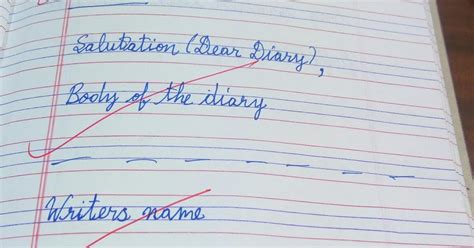 Salutation (Dear Diary),
Body of the diary
Writers name